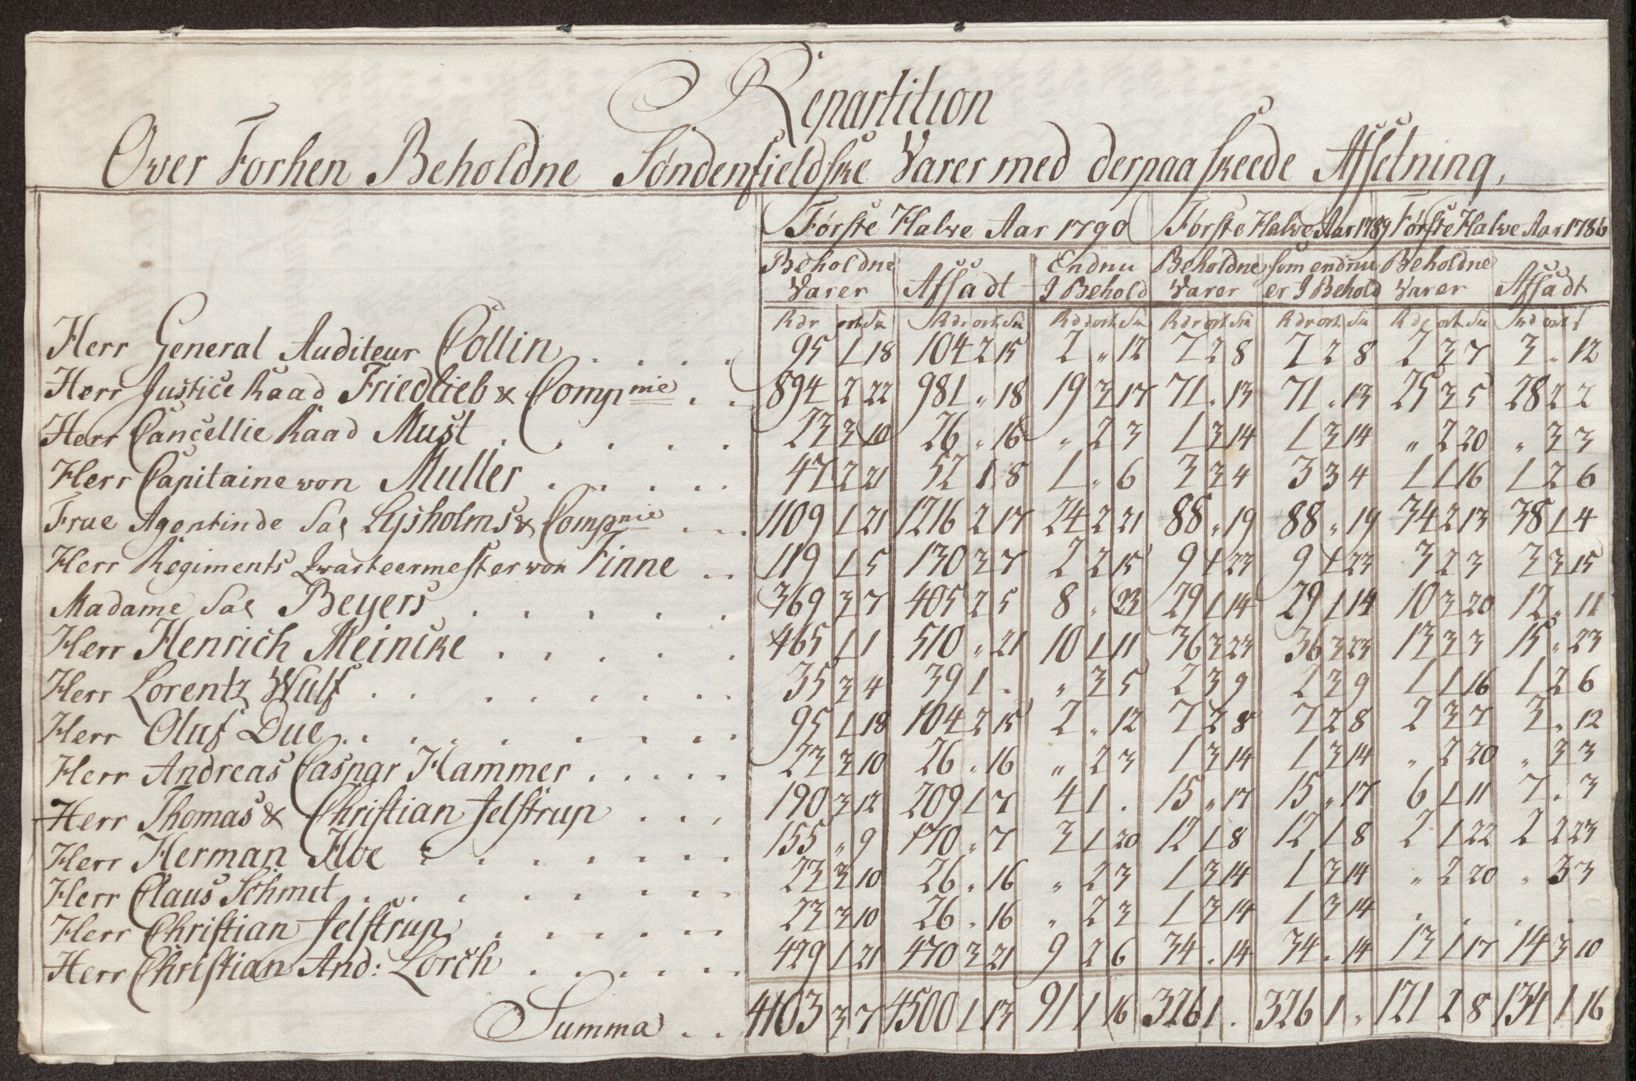 Repartition
Over Forhen Beholdne Søndenfieldske Varer med derpaa skeede Afsetning,
Første Halve Aar 1790 Første Halve Aar 1789 Første Halve Aar 1786
Beholdne Varer Afsadt Endnu I Behold Beholdne Varer som endnu er I Behold Beholdne Varer Afsadt
Rdr ort Sk Rdr ort Sk Rdr ort Sk Rdr ort Sk Rdr ort Sk Rdr ort Sk
Herr General Auditeur Collin . . . . 95 1 18 104 2 15 2 " 12 7 2 8 7 2 8 2 3 7 3 " 12
Herr Justice Raad Friedlieb & Compnie . . 894 2 22 981 " 18 19 3 17 71 " 13 71 " 13 25 3 5 28 2 2
Herr Cancellie Raad Must . . . . . 23 3 10 26 " 16 " 2 3 1 3 14 1 3 14 " 2 20 " 3 3
Herr Capitaine von Muller . . . . . 47 2 21 52 1 8 1 " 6 3 3 4 3 3 4 1 1 16 1 2 6
Frue Agentinde Sal Lysholms & Compnie . . . 1109 1 21 1216 2 17 24 2 21 88 " 19 88 " 19 34 2 13 38 1 4
Herr Regiments Qvarteermester von Finne . . 119 1 5 130 3 7 2 2 15 9 " 23 9 " 23 3 2 3 3 3 15
Madame Sal Beyers . . . . . . 369 3 7 405 2 5 8 " 23 29 1 14 29 1 14 10 3 20 12 " 11
Herr Henrich Meincke . . . . . 465 1 1 510 " 21 10 1 11 36 3 23 36 3 23 13 3 3 15 " 23
Herr Lorentz Wulf . . . . . . . 35 3 4 39 1 . " 3 5 2 3 9 2 3 9 1 1 16 1 2 6
Herr Oluf Due . . . . . . . . 95 1 18 104 2 15 2 " 12 7 2 8 7 2 8 2 3 7 3 " 12
Herr Andreas Caspar Hammer . . . . . 23 3 10 26 " 16 " 2 3 1 3 14 1 3 14 " 2 20 " 3 3
Herr Thomas & Christian Jelstrup . . . 190 3 12 209 1 7 4 1 . 15 " 17 15 " 17 6 1 11 7 " 3
Herr Herman Hoe . . . . . . 155 " 9 170 " 7 3 1 20 12 1 8 12 1 8 2 1 22 2 2 23
Herr Claus Schmit . . . . . . . 23 3 10 26 " 16 " 2 3 1 3 14 1 3 14 " 2 20 " 3 3
Herr Christian Jelstrup . . . . . 23 3 10 26 " 16 " 2 3 1 3 14 1 3 14 . . . .
Herr Christian And: Lorck . . . . . 429 1 21 470 3 21 9 2 6 34 " 14 34 " 14 13 1 17 14 3 10
Summa . . 4103 3 7 4500 1 13 91 1 16 326 1 . 326 1 " 121 2 8 134 1 16